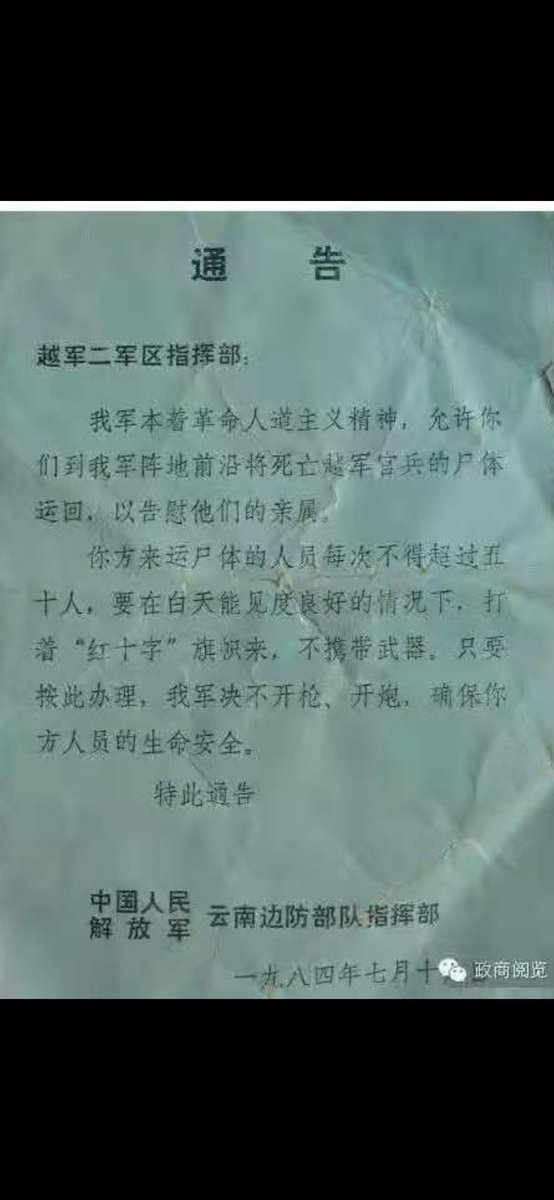 通 告
越军二军区指挥部:
我军本着革命人道主义精神，允许你
们到我军阵地前沿将死亡越军官兵的尸体
运回，以告慰他们的亲属。
你方来运尸体的人员每次不得超过五
十人，要在白天能见度良好的情况下，打
着“红十字”旗帜来，不携带武器。只要
按此办理，我军决不开枪、开炮，确保你
方人员的生命安全。
特此通告
中国人民
解放军 云南边防部队指挥部
一九八四年七月十
政商阅览